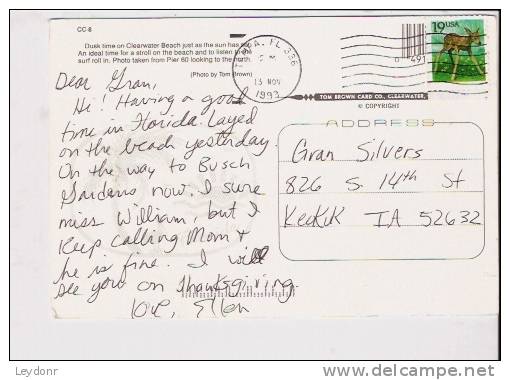 CC-8
Dusk time on Clearwater Beach just as the sun has set.
An ideal time for a stroll on the beach and to listen to the
surf roll in. Photo taken from Pier 60 looking to the north.
(Photo by Tom Brown)
Dear Gran,
Hi! Having a good
time in Florida. Layed
on the beach yesterday.
On the way to Busch
Gardens now. I sure
miss William, but I
keep calling Mom +
he is fine. I will
see you on Thanksgiving.
Love, Ellen
TAMPA, FL 336
PM
13 NOV
1993
19 USA
0 491
TOM BROWN CARD CO., CLEARWATER,
© COPYRIGHT
ADDRESS
Gran Silvers
826 S. 14th St
KeoKuK IA 52632
Leydonr
www.delcampe.net